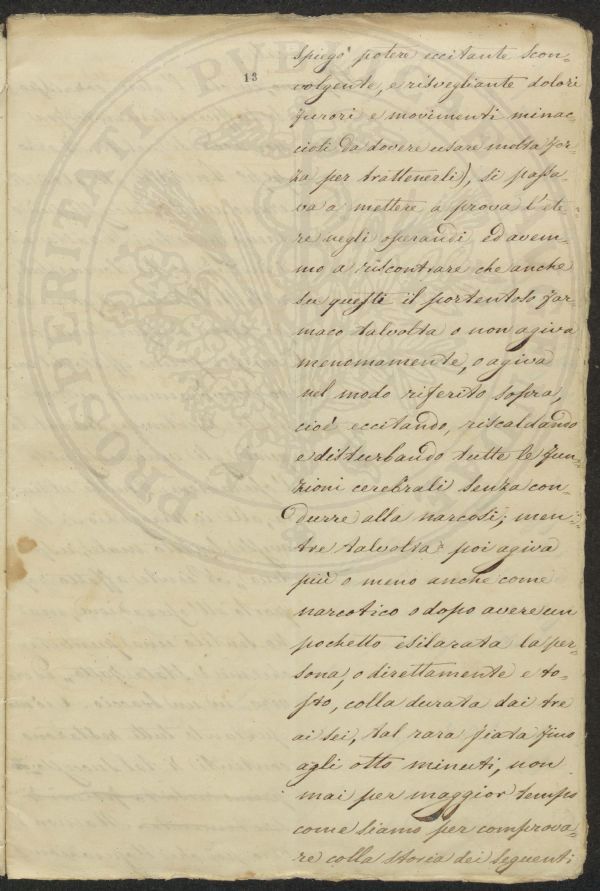 13
spiegò potere eccitante scon-
volgente, e risvegliante dolori
furori e movimenti minac-
ciosi da dovere usare molta for-
za per trattenerli), si passa-
va a mettere a prova l'ete-
re negli operandi, ed avem-
mo a riscontrare che anche
su questi il portentoso far-
maco talvolta o non agiva
menomamente, o agiva
nel modo riferito sopra,
cioè eccitando, riscaldando
e disturbando tutte le fun-
zioni cerebrali senza con-
durre alla narcosi; men-
tre talvolta poi agiva
più o meno anche come
narcotico o dopo avere un
pochetto esilarata la per-
sona, o direttamente e to-
sto, colla durata dai tre
ai sei, tal rara fiata fino
agli otto minuti, non
mai per maggior tempo
come siamo per comprova-
re colla storia dei seguenti
PROSPERITATI PUBLICAE